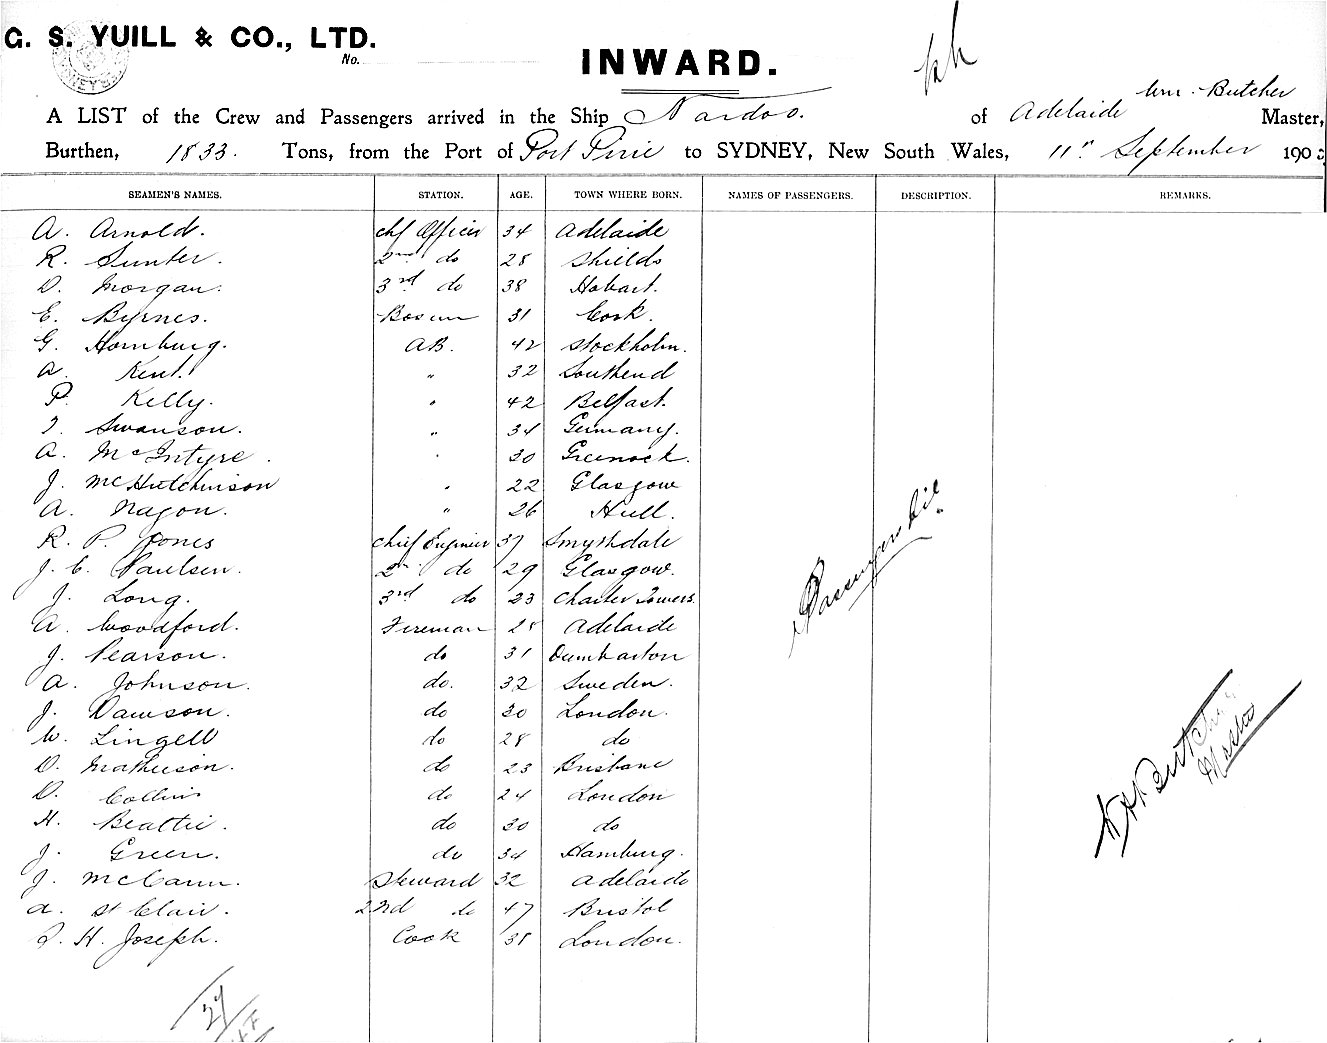 G. S. YUILL & CO., LTD.
No.
INWARD.
Wm. Butcher
A LIST of the Crew and Passengers arrived in the Ship Nardoo. of Adelaide Master,
Burthen, 1833. Tons, from the Port of Port Pirie to SYDNEY, New South Wales, 11th September 190
SEAMEN'S NAMES. STATION. AGE. TOWN WHERE BORN. NAMES OF PASSENGERS. DESCRIPTION. REMARKS.
A. Arnold. chf Officer 34 Adelaide
R. Sunter. 2nd do 28 Shields
D. Morgan. 3rd do 38 Hobart.
E. Byrnes. Bosun 31 Cork.
G. Homburg. AB. 42 Stockholm.
A. Kent. " 32 Southend
P. Kelly. " 42 Belfast.
Swanson. " 34 Germany.
A. McIntyre. " 30 Greenock.
J. McHutchinson " 22 Glasgow
A. Nagon. " 26 Hull.
R. P. Jones Chief Engineer 37 Smythdale
J. C. Paulsen. 2nd do 29 Glasgow.
J. Long. 3rd do 23 Charter Towers.
A. Woodford. Fireman 28 Adelaide
J. Pearson. do 31 Dumbarton
A. Johnson. do. 32 Sweden.
J. Dawson. do 30 London.
W. Lingell do 28 do
D. Matheison. do 23 Brisbane
D. Collins do 24 London
H. Beattie. do 30 do
J. Green. do 34 Hamburg.
J. McCann. Steward 32 Adelaide
A. St Clair. 2nd do 47 Bristol
H. Joseph. Cook 38 London.
Passengers Nil.
Wm Butcher
Master
27